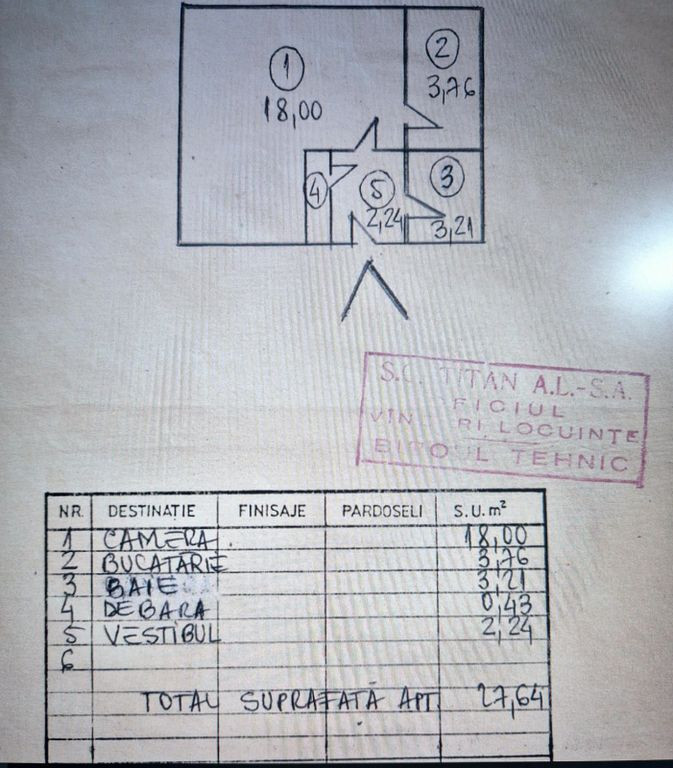 1
18,00
2
3,76
3
3,21
4
5
2,24
S.C. TITAN A.L.-S.A.
FICIUL
VIN RI LOCUINTE
BIROUL TEHNIC
NR. DESTINAȚIE FINISAJE PARDOSELI S.U. m²
1 CAMERA 18,00
2 BUCATARIE 3,76
3 BAIE 3,21
4 DEBARA 0,43
5 VESTIBUL 2,24
6
TOTAL SUPRAFATĂ APT. 27,64